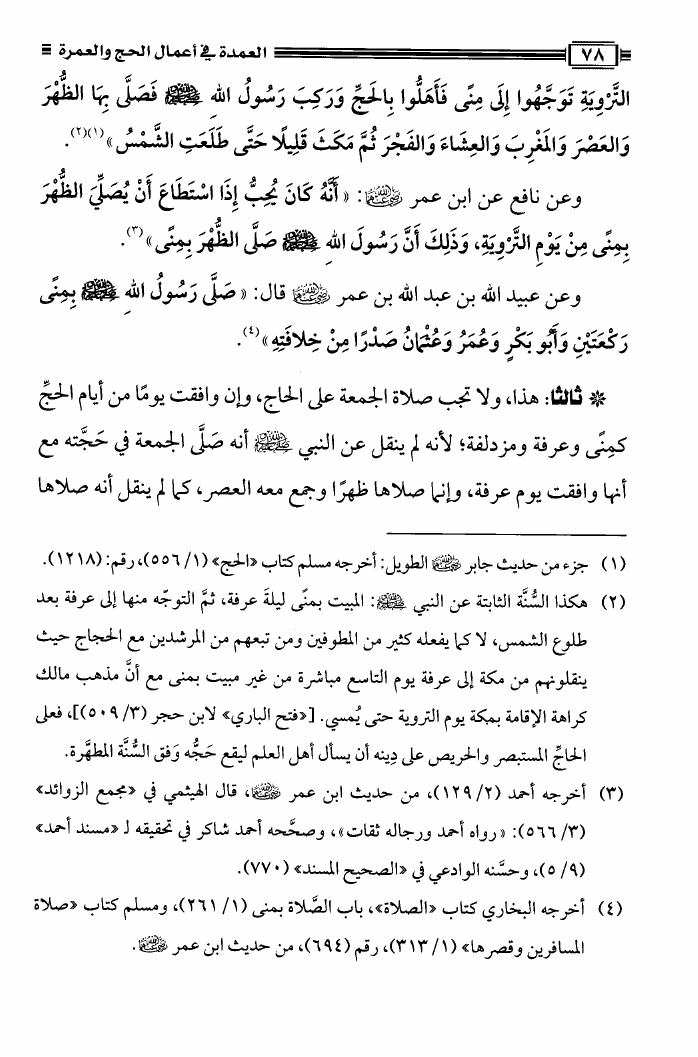 ٧٨ العمدة في أعمال الحج والعمرة
التَّرْوِيَةِ تَوَجَّهُوا إِلَى مِنًى فَأَهَلُّوا بِالحَجِّ وَرَكِبَ رَسُولُ اللهِ ﷺ فَصَلَّى بِهَا الظُّهْرَ
وَالعَصْرَ وَالمَغْرِبَ وَالعِشَاءَ وَالفَجْرَ ثُمَّ مَكَثَ قَلِيلًا حَتَّى طَلَعَتِ الشَّمْسُ»(١)(٢).
وعن نافع عن ابن عمر رضي الله عنهما: «أَنَّهُ كَانَ يُحِبُّ إِذَا اسْتَطَاعَ أَنْ يُصَلِّيَ الظُّهْرَ
بِمِنًى مِنْ يَوْمِ التَّرْوِيَةِ، وَذَلِكَ أَنَّ رَسُولَ اللهِ ﷺ صَلَّى الظُّهْرَ بِمِنًى»(٣).
وعن عبيد الله بن عبد الله بن عمر رضي الله عنهما قال: «صَلَّى رَسُولُ اللهِ ﷺ بِمِنًى
رَكْعَتَيْنِ وَأَبُو بَكْرٍ وَعُمَرُ وَعُثْمَانُ صَدْرًا مِنْ خِلَافَتِهِ»(٤).
* ثالثًا: هذا، ولا تجب صلاة الجمعة على الحاج، وإن وافقت يومًا من أيام الحجِّ
كمِنًى وعرفة ومزدلفة؛ لأنه لم ينقل عن النبي ﷺ أنه صَلَّى الجمعة في حَجَّته مع
أنها وافقت يوم عرفة، وإنما صلاها ظهرًا وجمع معه العصر، كما لم ينقل أنه صلاها
(١) جزء من حديث جابر رضي الله عنهما الطويل: أخرجه مسلم كتاب «الحج» (١/ ٥٥٦)، رقم: (١٢١٨).
(٢) هكذا السُّنَّة الثابتة عن النبي ﷺ: المبيت بمنًى ليلةَ عرفة، ثمَّ التوجّه منها إلى عرفة بعد
طلوع الشمس، لا كما يفعله كثير من المطوفين ومن تبعهم من المرشدين مع الحجاج حيث
ينقلونهم من مكة إلى عرفة يوم التاسع مباشرة من غير مبيت بمنى مع أنَّ مذهب مالك
كراهة الإقامة بمكة يوم التروية حتى يُمسي. [«فتح الباري» لابن حجر (٣/ ٥٠٩)]، فعلى
الحاجِّ المستبصر والحريص على دِينه أن يسأل أهل العلم ليقع حَجُّه وَفق السُّنَّة المطهَّرة.
(٣) أخرجه أحمد (٢/ ١٢٩)، من حديث ابن عمر رضي الله عنهما، قال الهيثمي في «مجمع الزوائد»
(٣/ ٥٦٦): «رواه أحمد ورجاله ثقات»، وصحَّحه أحمد شاكر في تحقيقه لـ «مسند أحمد»
(٩/ ٥)، وحسَّنه الوادعي في «الصحيح المسند» (٧٧٠).
(٤) أخرجه البخاري كتاب «الصلاة»، باب الصَّلاة بمنى (١/ ٢٦١)، ومسلم كتاب «صلاة
المسافرين وقصرها» (١/ ٣١٣)، رقم (٦٩٤)، من حديث ابن عمر رضي الله عنهما.